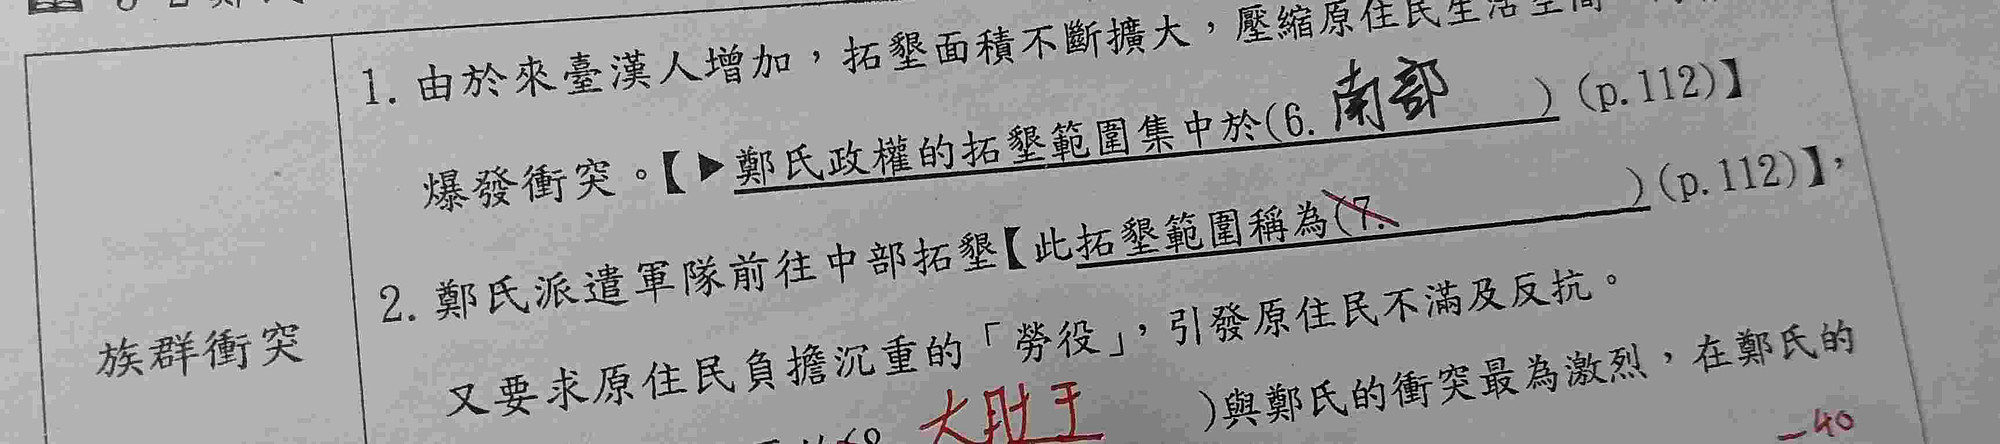 1. 由於來臺漢人增加，拓墾面積不斷擴大，壓縮原住民生活空間
爆發衝突。【▶鄭氏政權的拓墾範圍集中於(6. 南部 ) (p.112)】
2. 鄭氏派遣軍隊前往中部拓墾【此拓墾範圍稱為(7. ) (p.112)】，
族群衝突
又要求原住民負擔沉重的「勞役」，引發原住民不滿及反抗。
大肚王 )與鄭氏的衝突最為激烈，在鄭氏的
-40